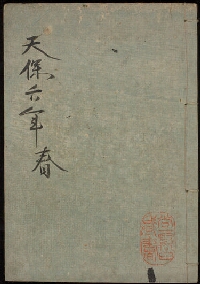 天保六年春